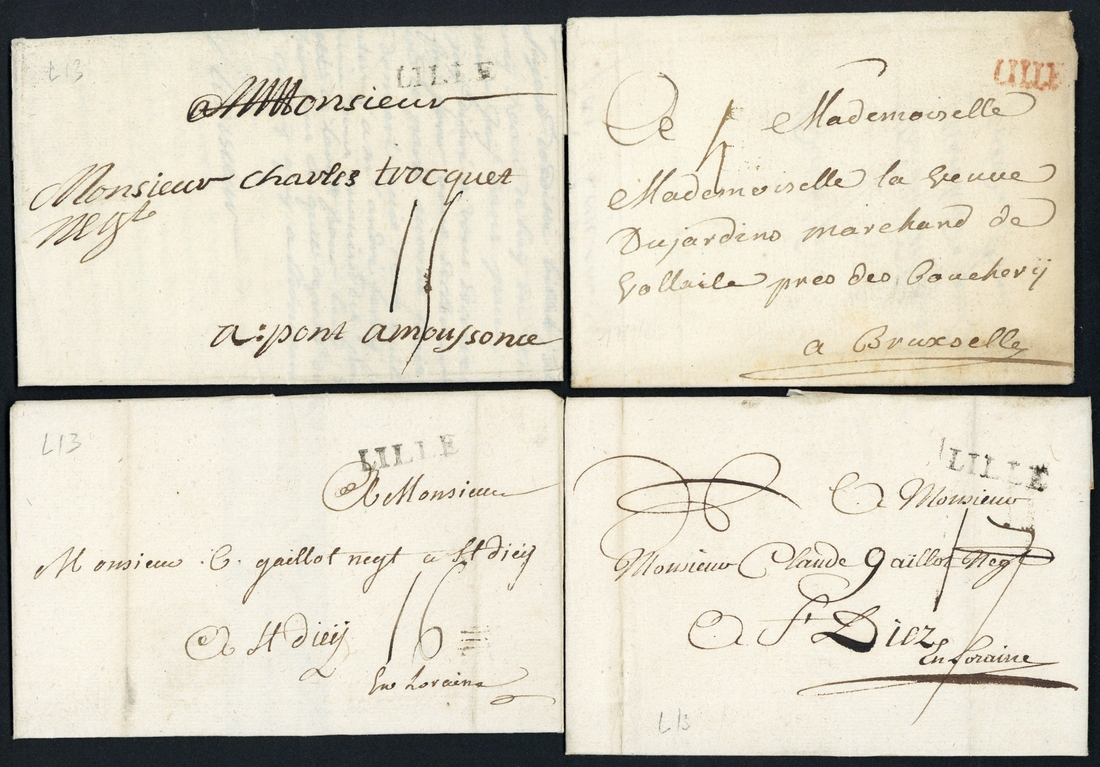 L13
LILLE
a Monsieur
Monsieur charles trocquet
negt
15
a: pont amoussonce
LILLE
A Mademoiselle
4
Mademoiselle la veuve
Dujardino marchand de
vollaile pres des boucherij
a Bruxselle
L13
LILLE
A Monsieur
Monsieur C. gaillot negt a St dieij
A St dieij
16
En Loraine
LILLE
A Monsieur
17
Monsieur Claude gaillot Negt
A St Diez
En Loraine
L13